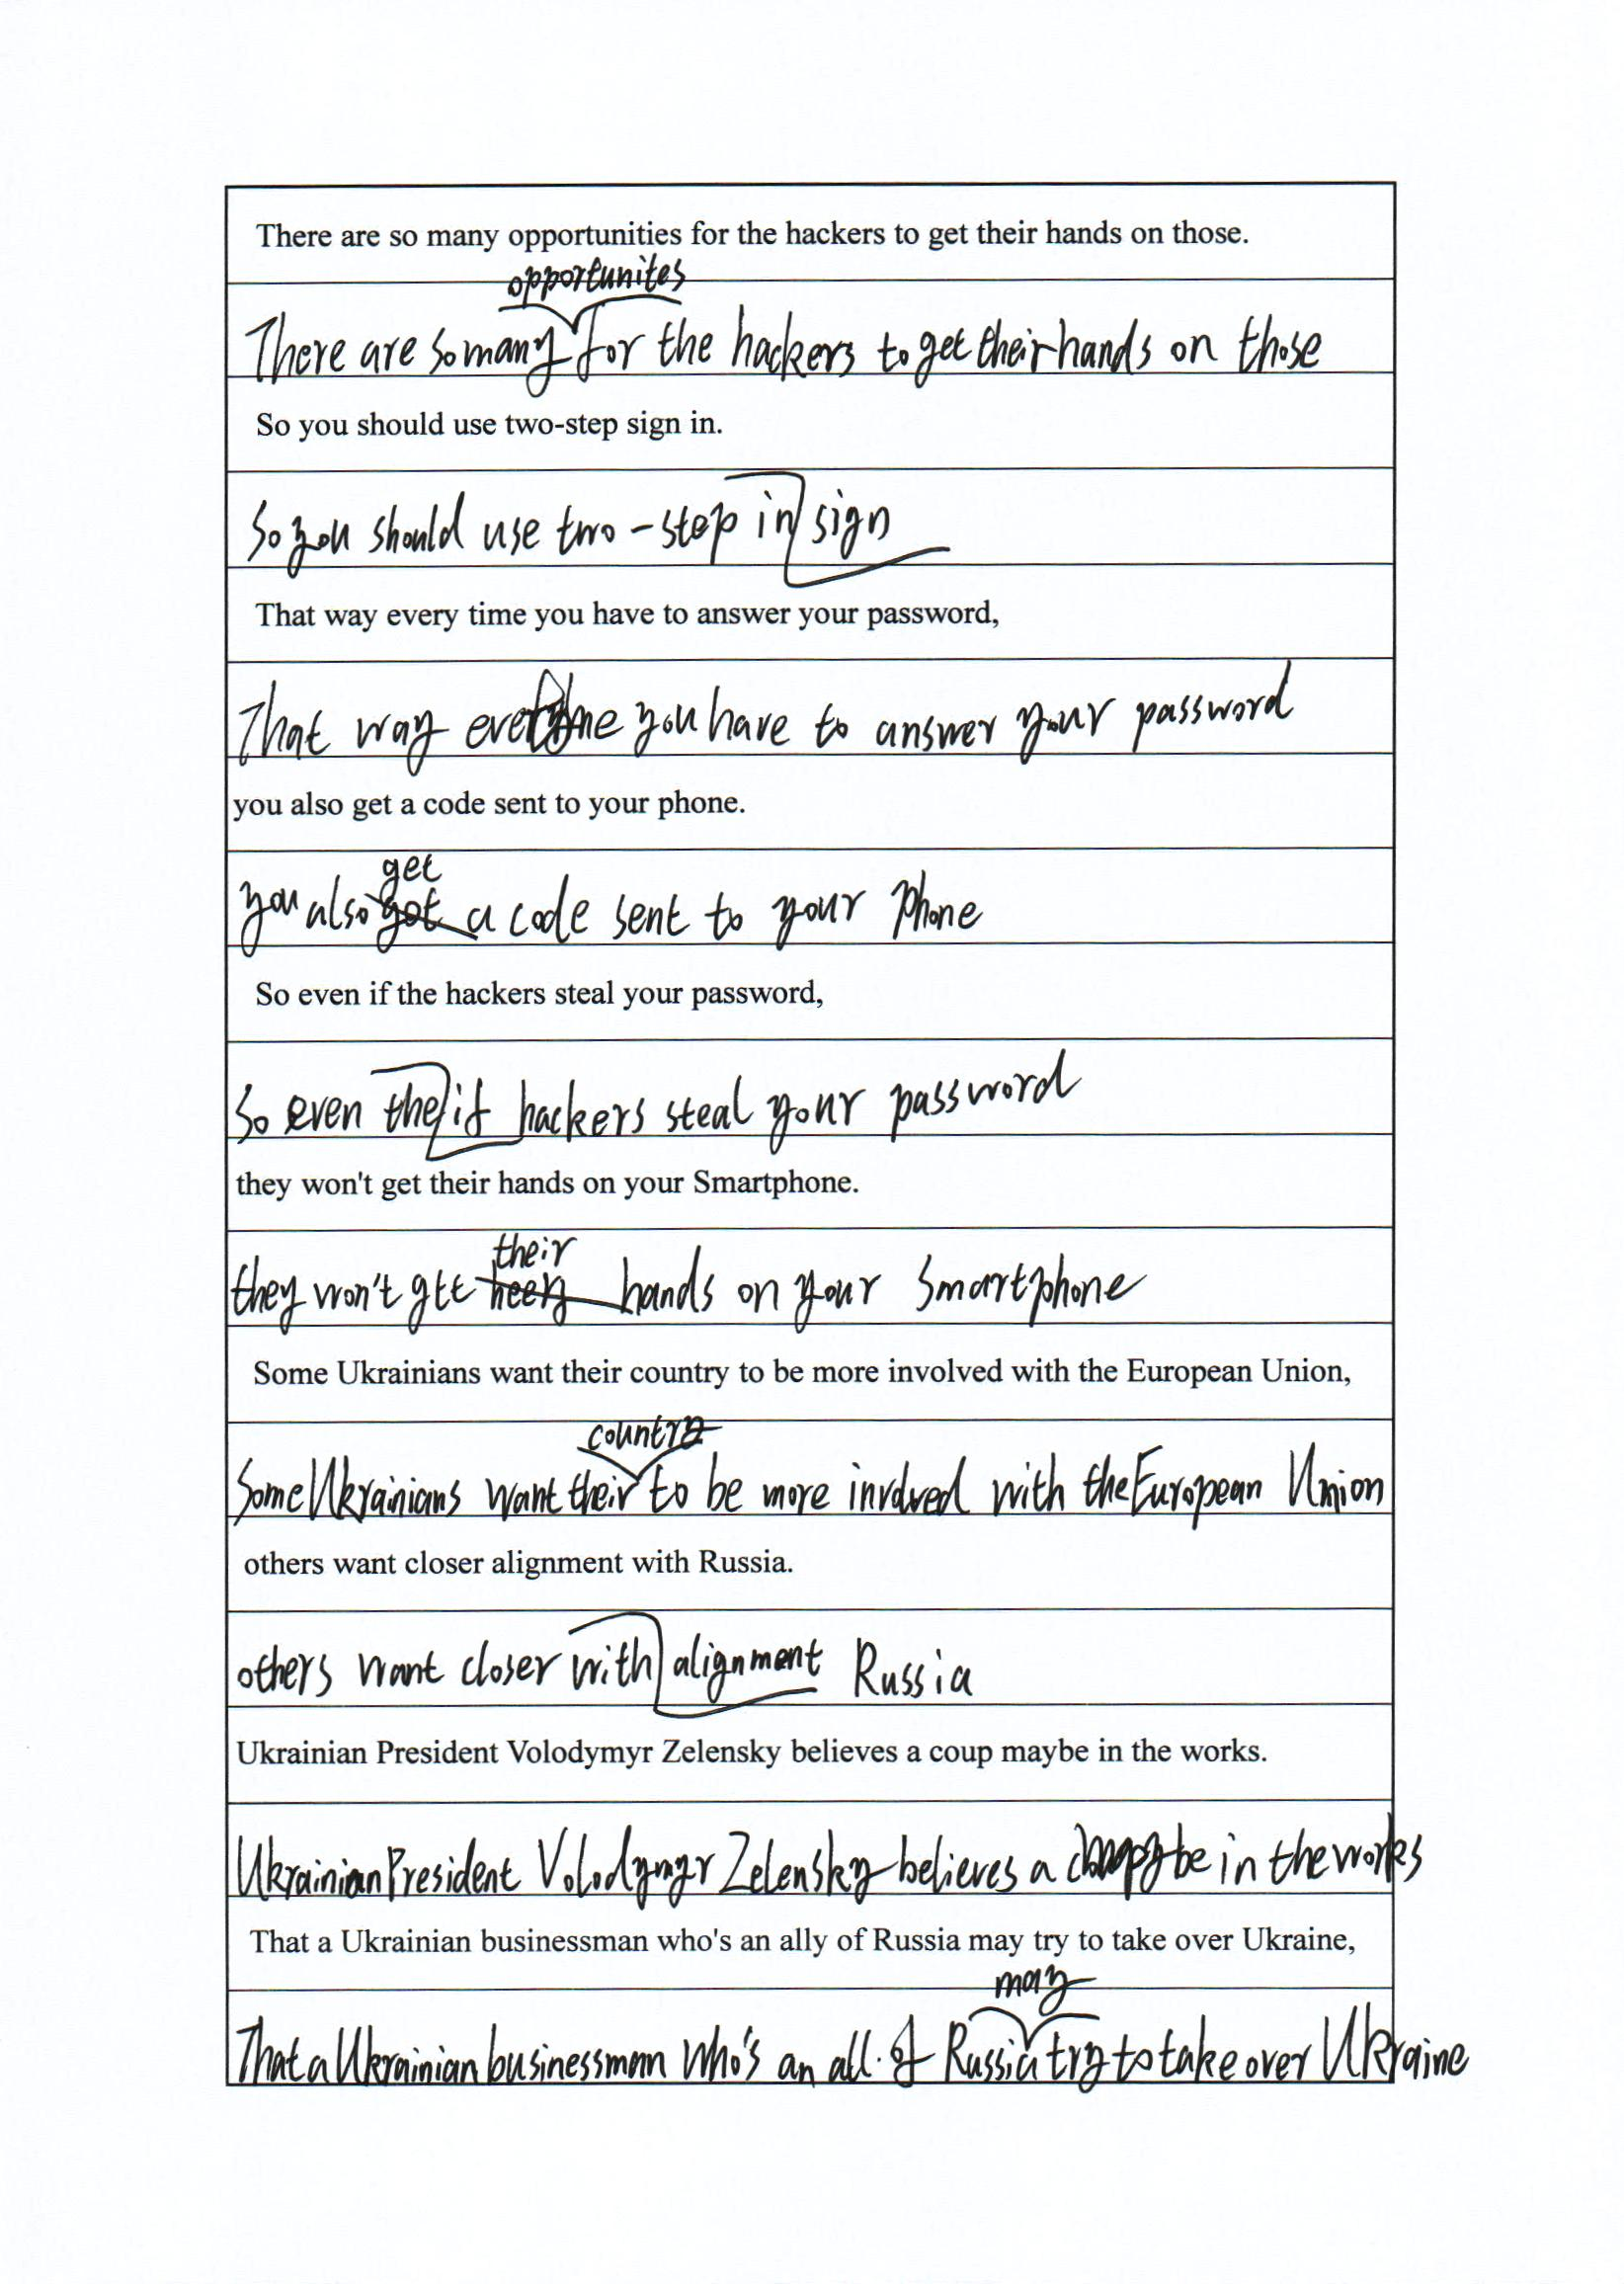 There are so many opportunities for the hackers to get their hands on those.
opportunites
There are so many for the hackers to get their hands on those
So you should use two-step sign in.
So you should use two-step in sign
That way every time you have to answer your password,
That way you have to answer your password
you also get a code sent to your phone.
get
you also got a code sent to your phone
So even if the hackers steal your password,
So even the if hackers steal your password
they won't get their hands on your Smartphone.
their
they won't get hands on your Smartphone
Some Ukrainians want their country to be more involved with the European Union,
country
Some Ukrainians want their to be more involved with the European Union
others want closer alignment with Russia.
others want closer with alignment Russia
Ukrainian President Volodymyr Zelensky believes a coup maybe in the works.
Ukrainian President Volodymyr Zelensky believes a be in the works
That a Ukrainian businessman who's an ally of Russia may try to take over Ukraine,
may
That a Ukrainian businessman who's an all of Russia try to take over Ukraine